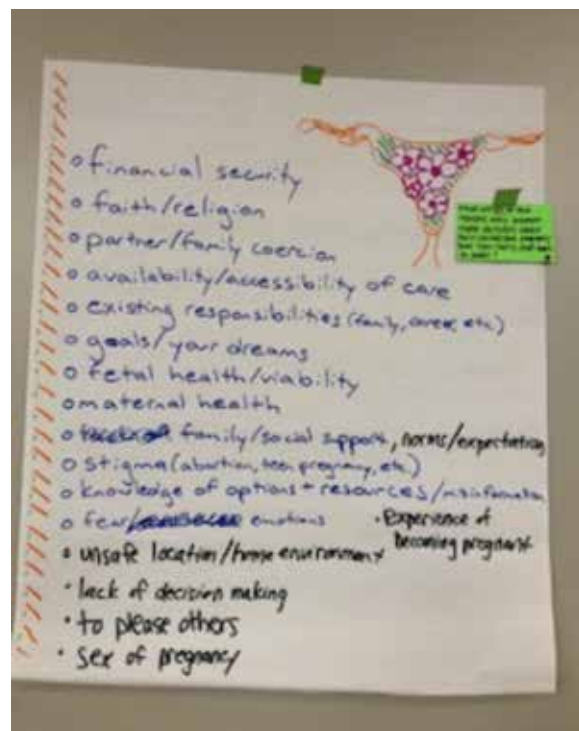 o financial security
o faith/religion
o partner/family coercion
o availability/accessibility of care
o existing responsibilities (family, career, etc.)
o goals/your dreams
o fetal health/viability
o maternal health
o family/social support, norms/expectation
o stigma (abortion, teen pregnancy, etc.)
o knowledge of options + resources/misinformation
o fear/ emotions
• Experience of
becoming pregnant
• unsafe location/home environment
• lack of decision making
• to please others
• sex of pregnancy